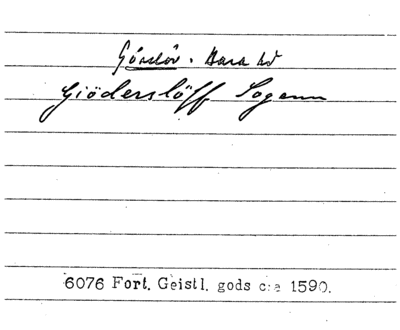 Görslöv. Bara hd
Giöderslöff Sogenn
6076 Fort. Geistl. gods c:a 1590.